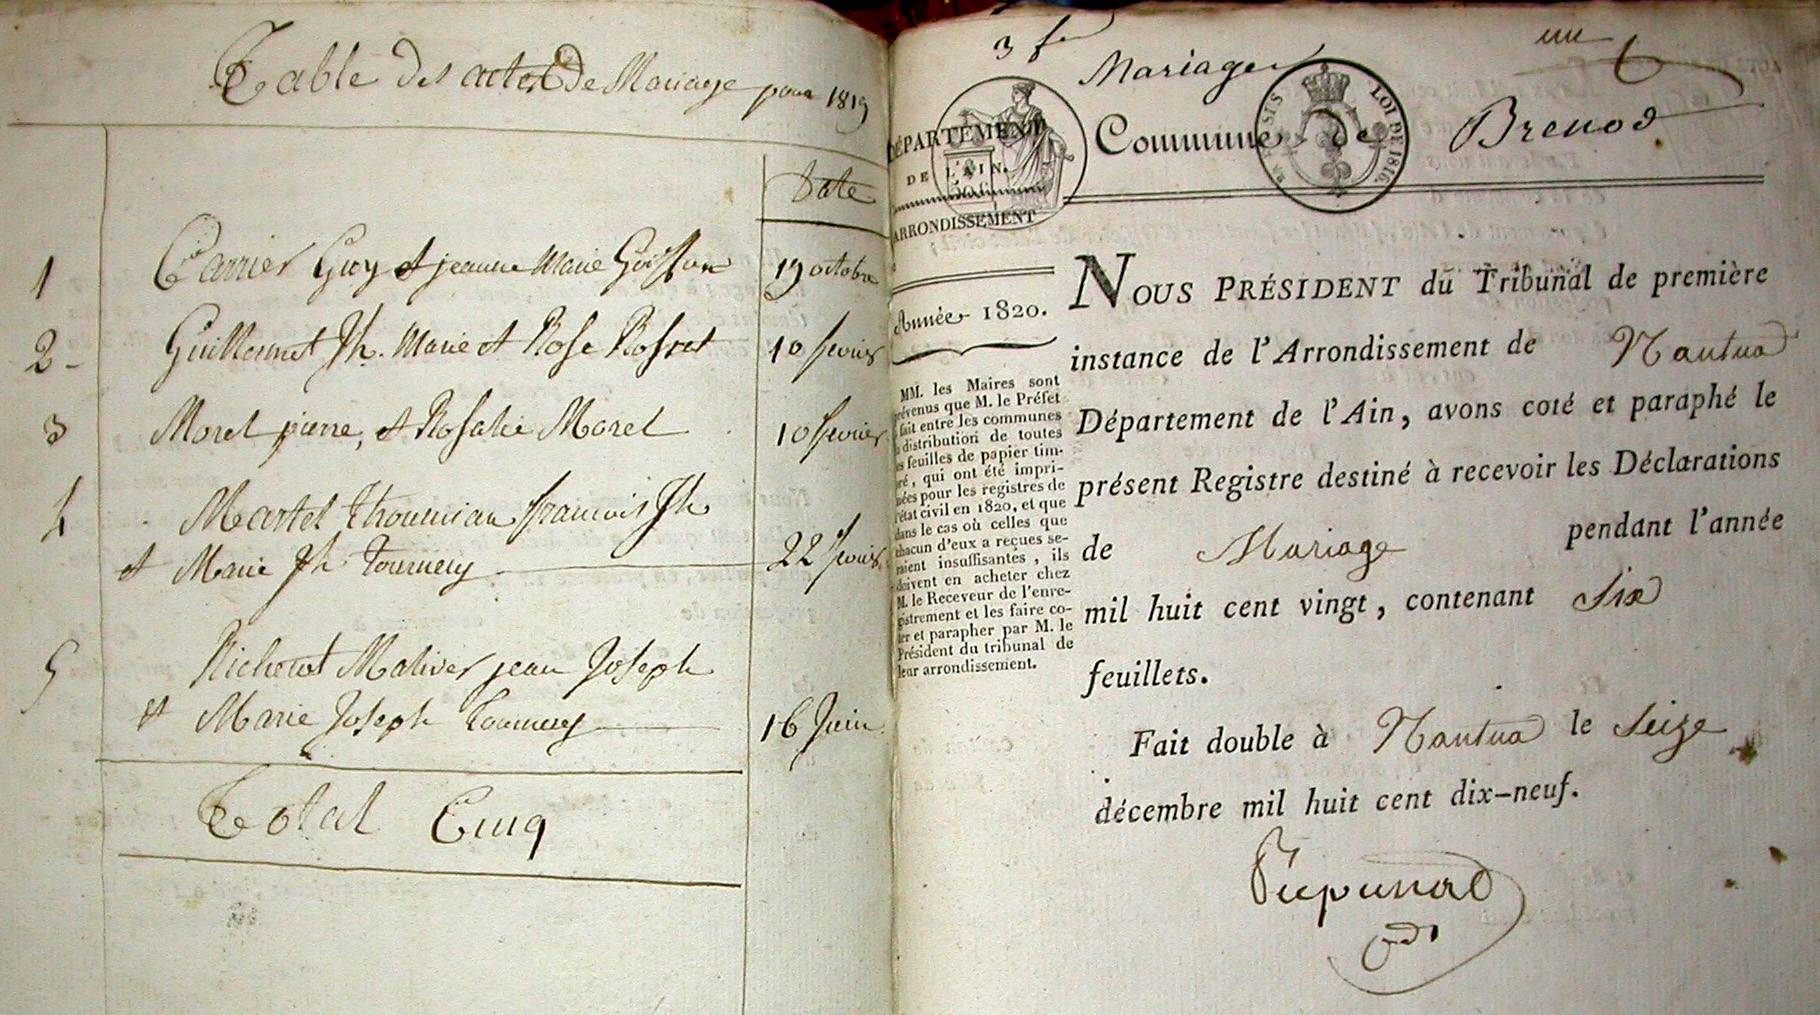 Table des actes de Mariage pour 1819
Date
1 Carrier Guy et jeanne Marie Goiffon 19 octobre
2 Guillermet Jh. Marie et Rose Rosset 10 fevrier
3 Morel pierre, et Rosalie Morel 10 fevrier
4 Martel Thoumian francois Jh
et Marie Jh Tournery 22 fevrier
5 Richerot Maliver jean Joseph
et Marie Joseph Tournery 16 Juin
Total Cinq
3 f
Mariage
DÉPARTEMENT
DE L'AIN.
ARRONDISSEMENT
Commune de Brenod
LOI DE 1816.
Année 1820.
MM. les Maires sont
prévenus que M. le Préfet
fait entre les communes
la distribution de toutes
les feuilles de papier tim-
bré, qui ont été impri-
mées pour les registres de
l'état civil en 1820, et que
dans le cas où celles que
chacun d'eux a reçues se-
raient insuffisantes, ils
doivent en acheter chez
M. le Receveur de l'enre-
gistrement et les faire co-
ter et parapher par M. le
Président du tribunal de
leur arrondissement.
NOUS PRÉSIDENT du Tribunal de première
instance de l'Arrondissement de Nantua
Département de l'Ain, avons coté et paraphé le
présent Registre destiné à recevoir les Déclarations
de Mariage pendant l'année
mil huit cent vingt, contenant Six
feuillets.
Fait double à Nantua le Seize
décembre mil huit cent dix-neuf.